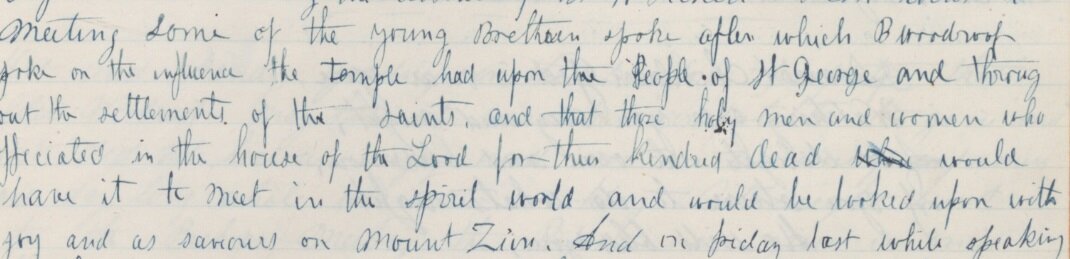 Meeting some of the young Brethern spoke after which B woodroof
spoke on the influence the temple had upon the People of St George and throug
out the settlements of the saints and that those holy men and women who
officiated in the house of the Lord for their kindred dead would
have it to meet in the spirit world and would be looked upon with
joy and as saviours on Mount Zion. And on friday last while speaking